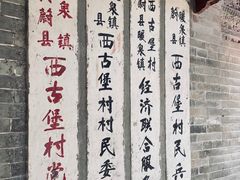 蔚县
泉镇
西古堡村党
蔚县
泉镇
西古堡村村民委
蔚县暖泉镇
西古堡村
经济联合服
蔚县
暖泉镇
西古堡村民兵